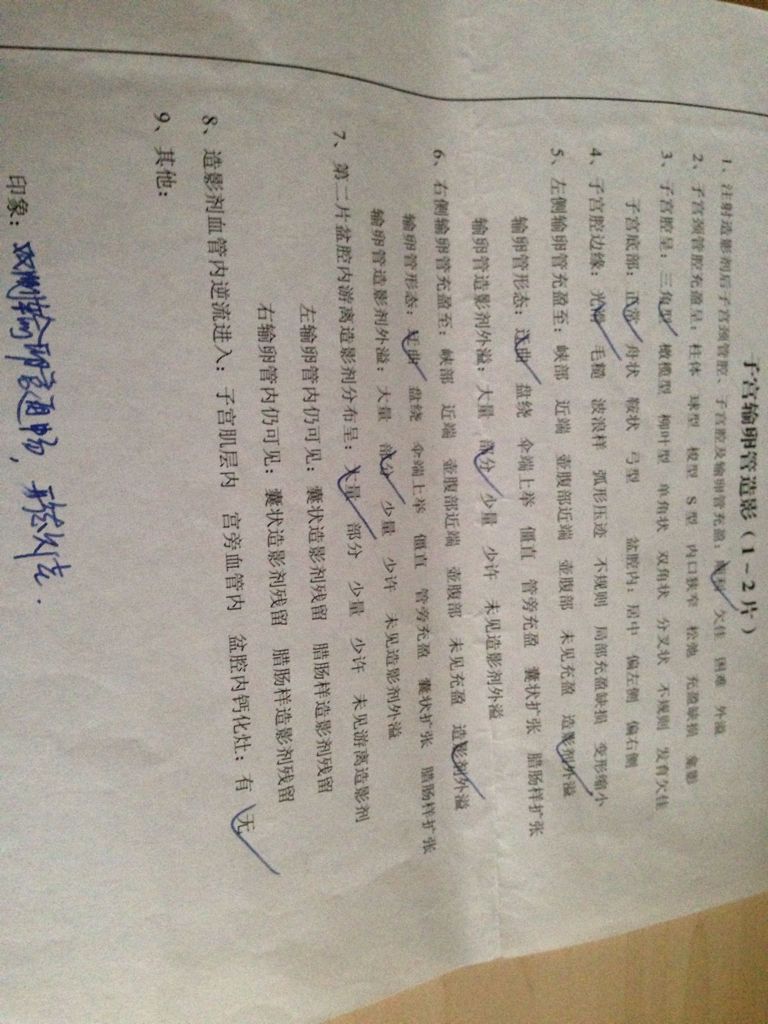 子宫输卵管造影（1－2片）
1、注射造影剂后子宫颈管腔、子宫腔及输卵管充盈：顺利 欠佳 困难 外溢
2、子宫颈管腔充盈呈：柱体 球型 梭型 S型 内口狭窄 松弛 充盈缺损 龛影
3、子宫腔呈：三角型 橄榄型 柳叶型 单角状 双角状 分叉状 不规则 发育欠佳
子宫底部：正常 舟状 鞍状 弓型 盆腔内：居中 偏左侧 偏右侧
4、子宫腔边缘：光滑 毛糙 波浪样 弧形压迹 不规则 局部充盈缺损 变形缩小
5、左侧输卵管充盈至：峡部 近端 壶腹部近端 壶腹部 未见充盈 造影剂外溢
输卵管形态：迂曲 盘绕 伞端上举 僵直 管旁充盈 囊状扩张 腊肠样扩张
输卵管造影剂外溢：大量 部分 少量 少许 未见造影剂外溢
6、右侧输卵管充盈至：峡部 近端 壶腹部近端 壶腹部 未见充盈 造影剂外溢
输卵管形态：迂曲 盘绕 伞端上举 僵直 管旁充盈 囊状扩张 腊肠样扩张
输卵管造影剂外溢：大量 部分 少量 少许 未见造影剂外溢
7、第二片盆腔内游离造影剂分布呈：大量 部分 少量 少许 未见游离造影剂
左输卵管内仍可见：囊状造影剂残留 腊肠样造影剂残留
右输卵管内仍可见：囊状造影剂残留 腊肠样造影剂残留
8、造影剂血管内逆流进入：子宫肌层内 宫旁血管内 盆腔内钙化灶：有 无
9、其他：
印象：双侧输卵管通畅，